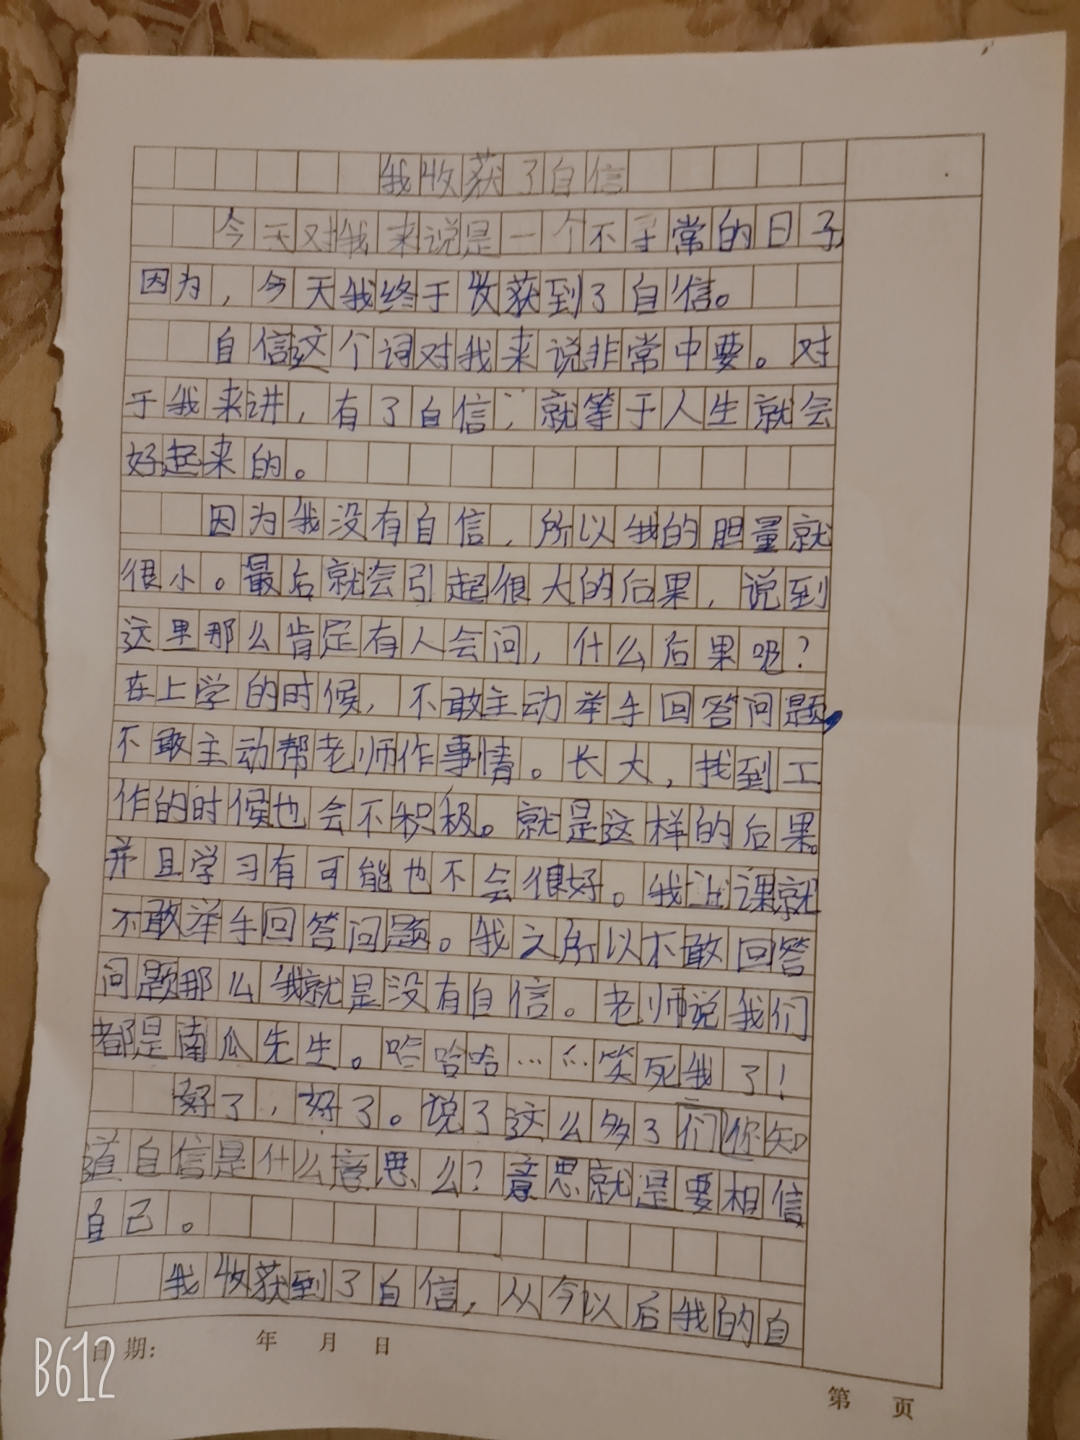 我收获了自信
今天对我来说是一个不平常的日子
因为，今天我终于收获到了自信。
自信这个词对我来说非常中要。对
于我来讲，有了自信，就等于人生就会
好起来的。
因为我没有自信，所以我的胆量就
很小。最后就会引起很大的后果，说到
这里那么肯定有人会问，什么后果呢？
在上学的时候，不敢主动举手回答问题，
不敢主动帮老师作事情。长大，找到工
作的时候也会不积极。就是这样的后果。
并且学习有可能也不会很好。我上课就
不敢举手回答问题。我之所以不敢回答
问题那么我就是没有自信。老师说我们
都是南瓜先生。哈哈哈……笑死我了！
好了，好了。说了这么多了们你知
道自信是什么意思么？意思就是要相信
自己。
我收获到了自信，从今以后我的自
日期： 年 月 日
第 页
B612